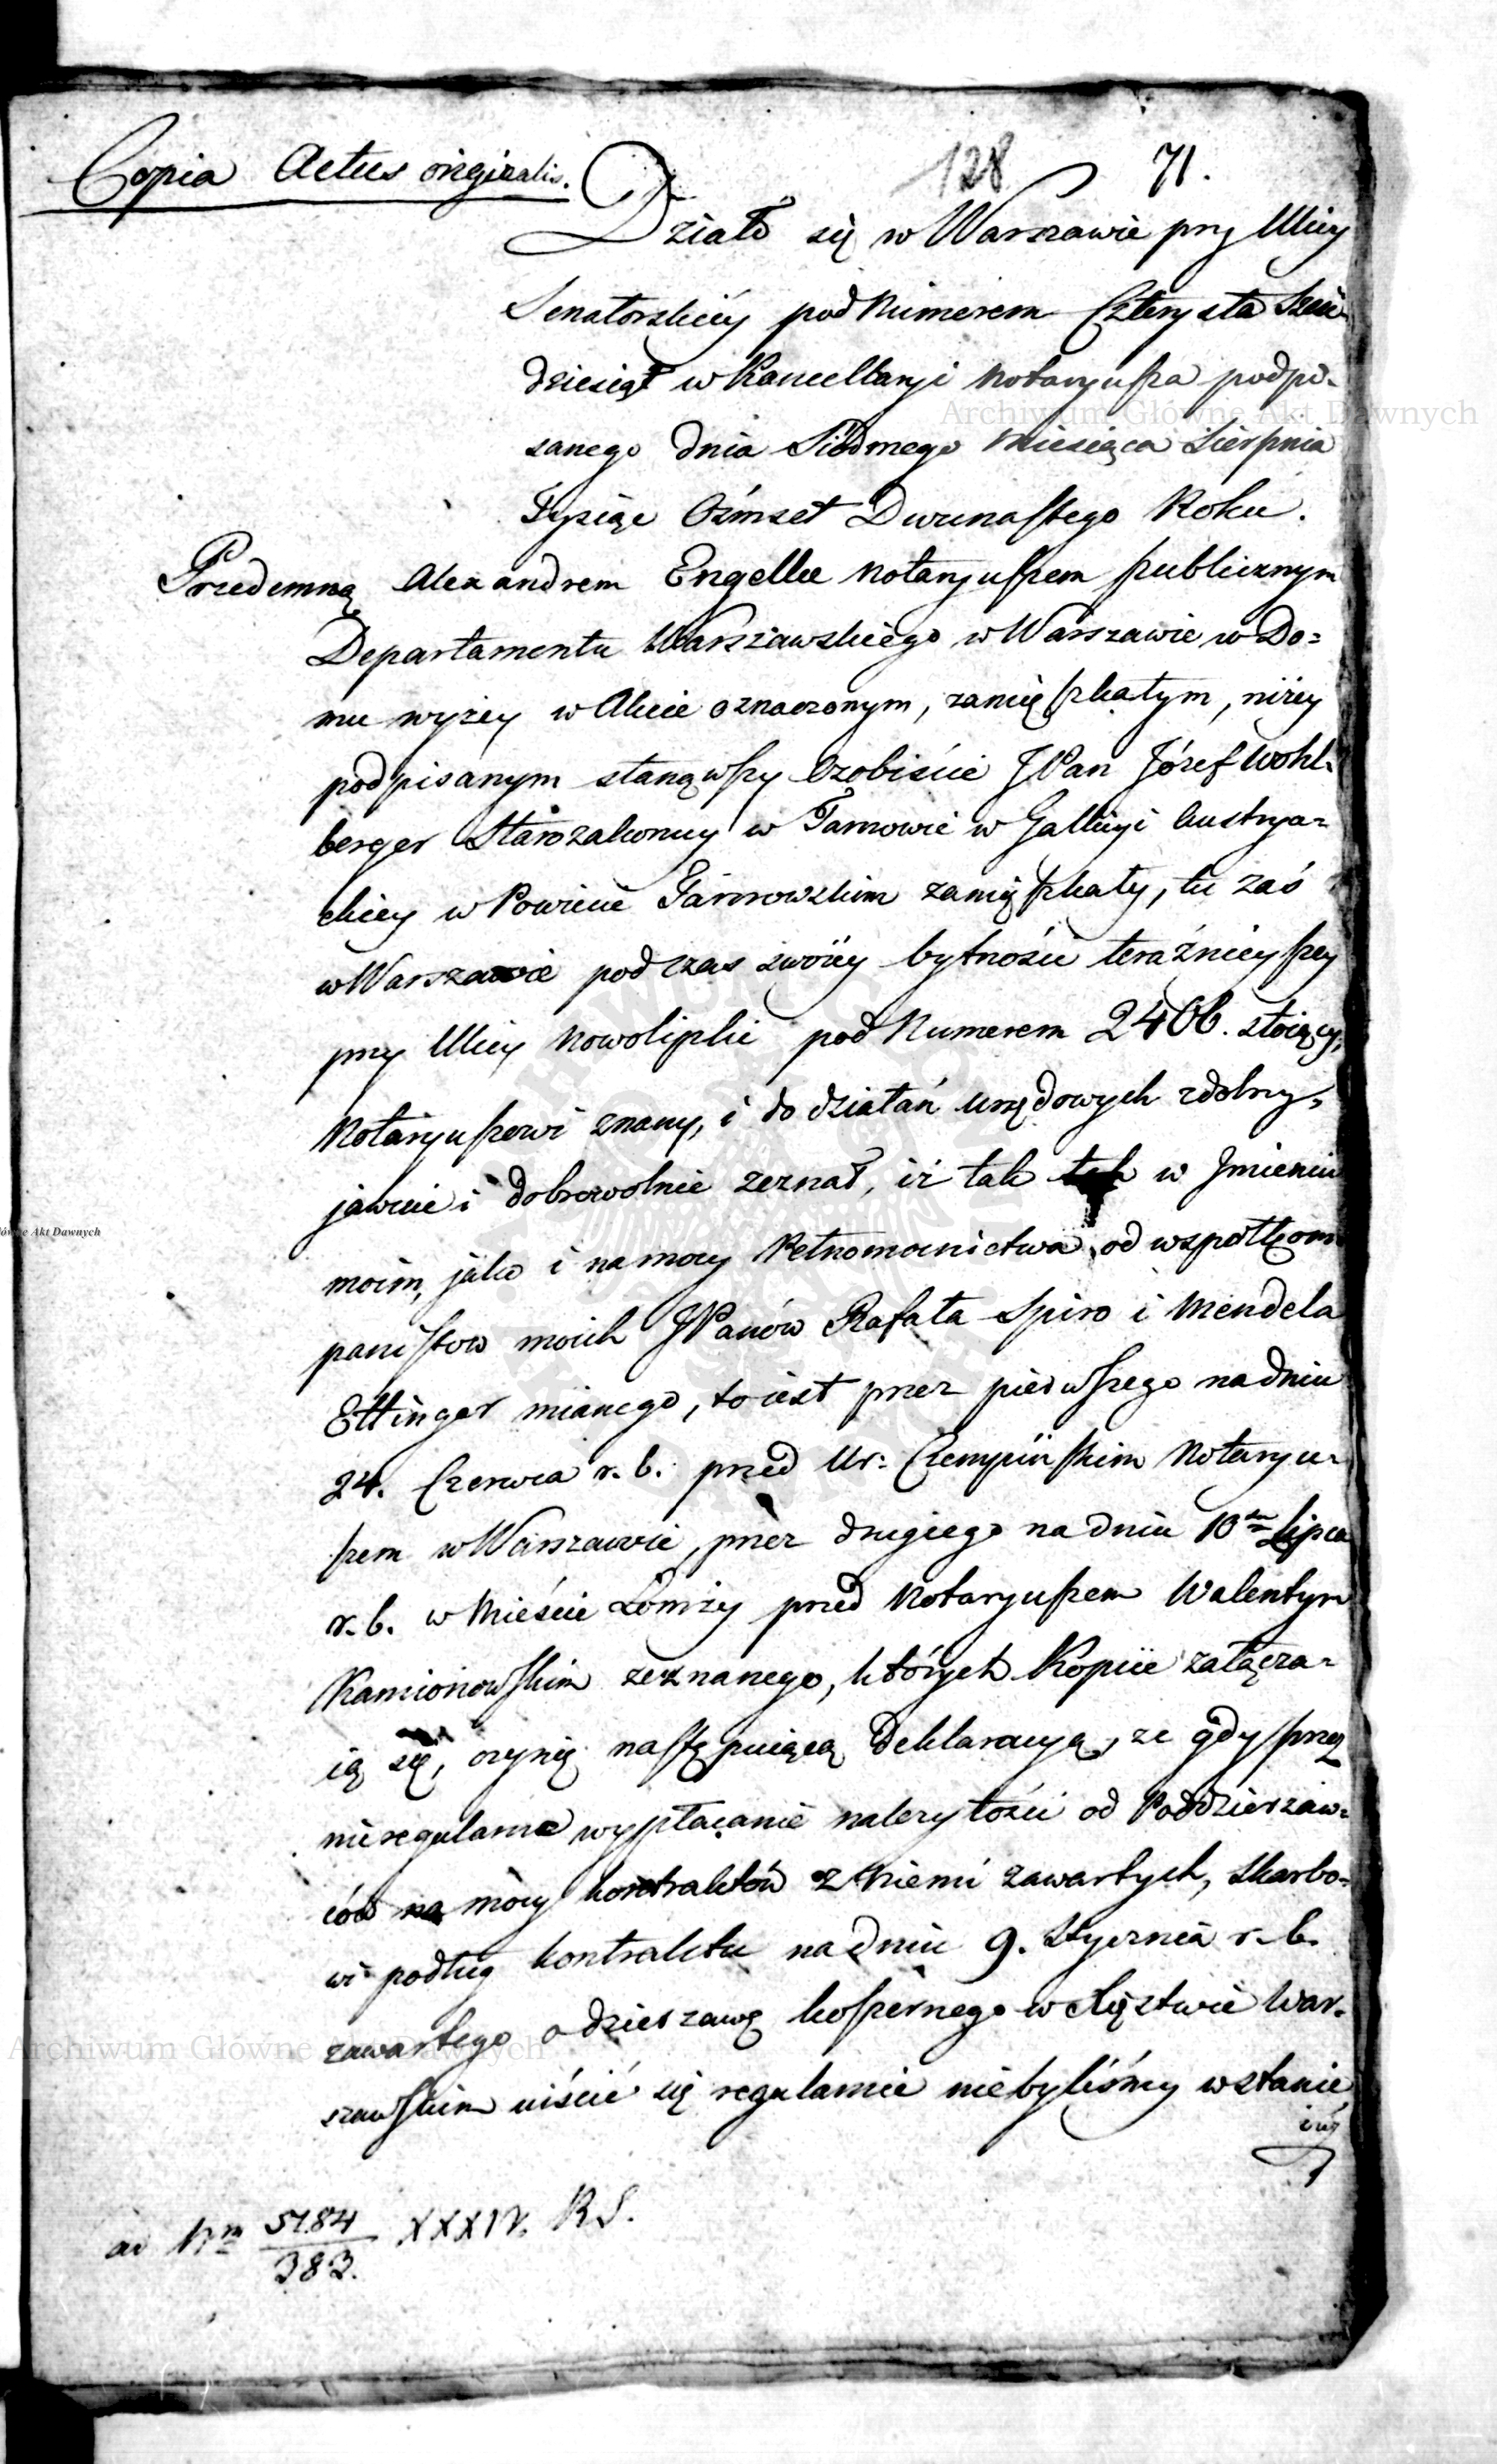 Copia Actus originalis.
128 71.
Działo się w Warszawie przy Ulicy
Senatorskiéy pod Numerem Czterysta Sześć
dziesiąt w Kancellaryi Notaryusza podpi-
sanego dnia Siódmego Miesiąca Sierpnia
Tysiąc Ośmset Dwunastego Roku.
Przedemną Alexandrem Engelke Notaryuszem publicznym
Departamentu Warszawskiego w Warszawie w Do=
mu wyżey w Akcie oznaczonym, zamięszkałym, niżey
podpisanym stanąwszy Osobiście JPan Józef Wohl-
berger Starozakonny w Tarnowie w Gallicyi Austrya=
ckiey w Powiecie Tarnowskim zamięszkały, tu zaś
w Warszawie podczas swoiéy bytności teraźnieyszey
przy Ulicy Nowolipki pod Numerem 2406. stoiący,
Notaryuszowi znany, i do działań urzędowych zdolny,
jawnie i dobrowolnie zeznał, iż tak w Jmieniu
moim, jako i na mocy Pełnomocnictwa od wspołkom
panistow moich JPanów Rafała Spiro i Mendela
Ettinger mianego, to iest przez pierwszego na dniu
24. Czerwca r. b. przed Ur: Czempińskim Notaryu=
szem w Warszawie, przez drugiego na dniu 10 Lipca
r. b. w Mieście Łomży przed Notaryuszem Walentym
Kamionowskim zeznanego, których Kopiie załącza=
ią się, czynię następuiącą Deklaracyą, że gdy przez
nieregularne wypłacanie należytości od Poddzierżaw=
ców na mocy kontraktów z Niemi zawartych, Skarbo=
wi podług kontraktu na dniu 9. Stycznia r. b.
zawartego o dzierzawę koszernego w Xięstwie War-
szawskim uiścić się regularnie niebyliśmy wstanie
iuż
ad Nrm 5184/383. XXXIV. R S.
Archiwum Główne Akt Dawnych
Archiwum Główne Akt Dawnych
ówne Akt Dawnych